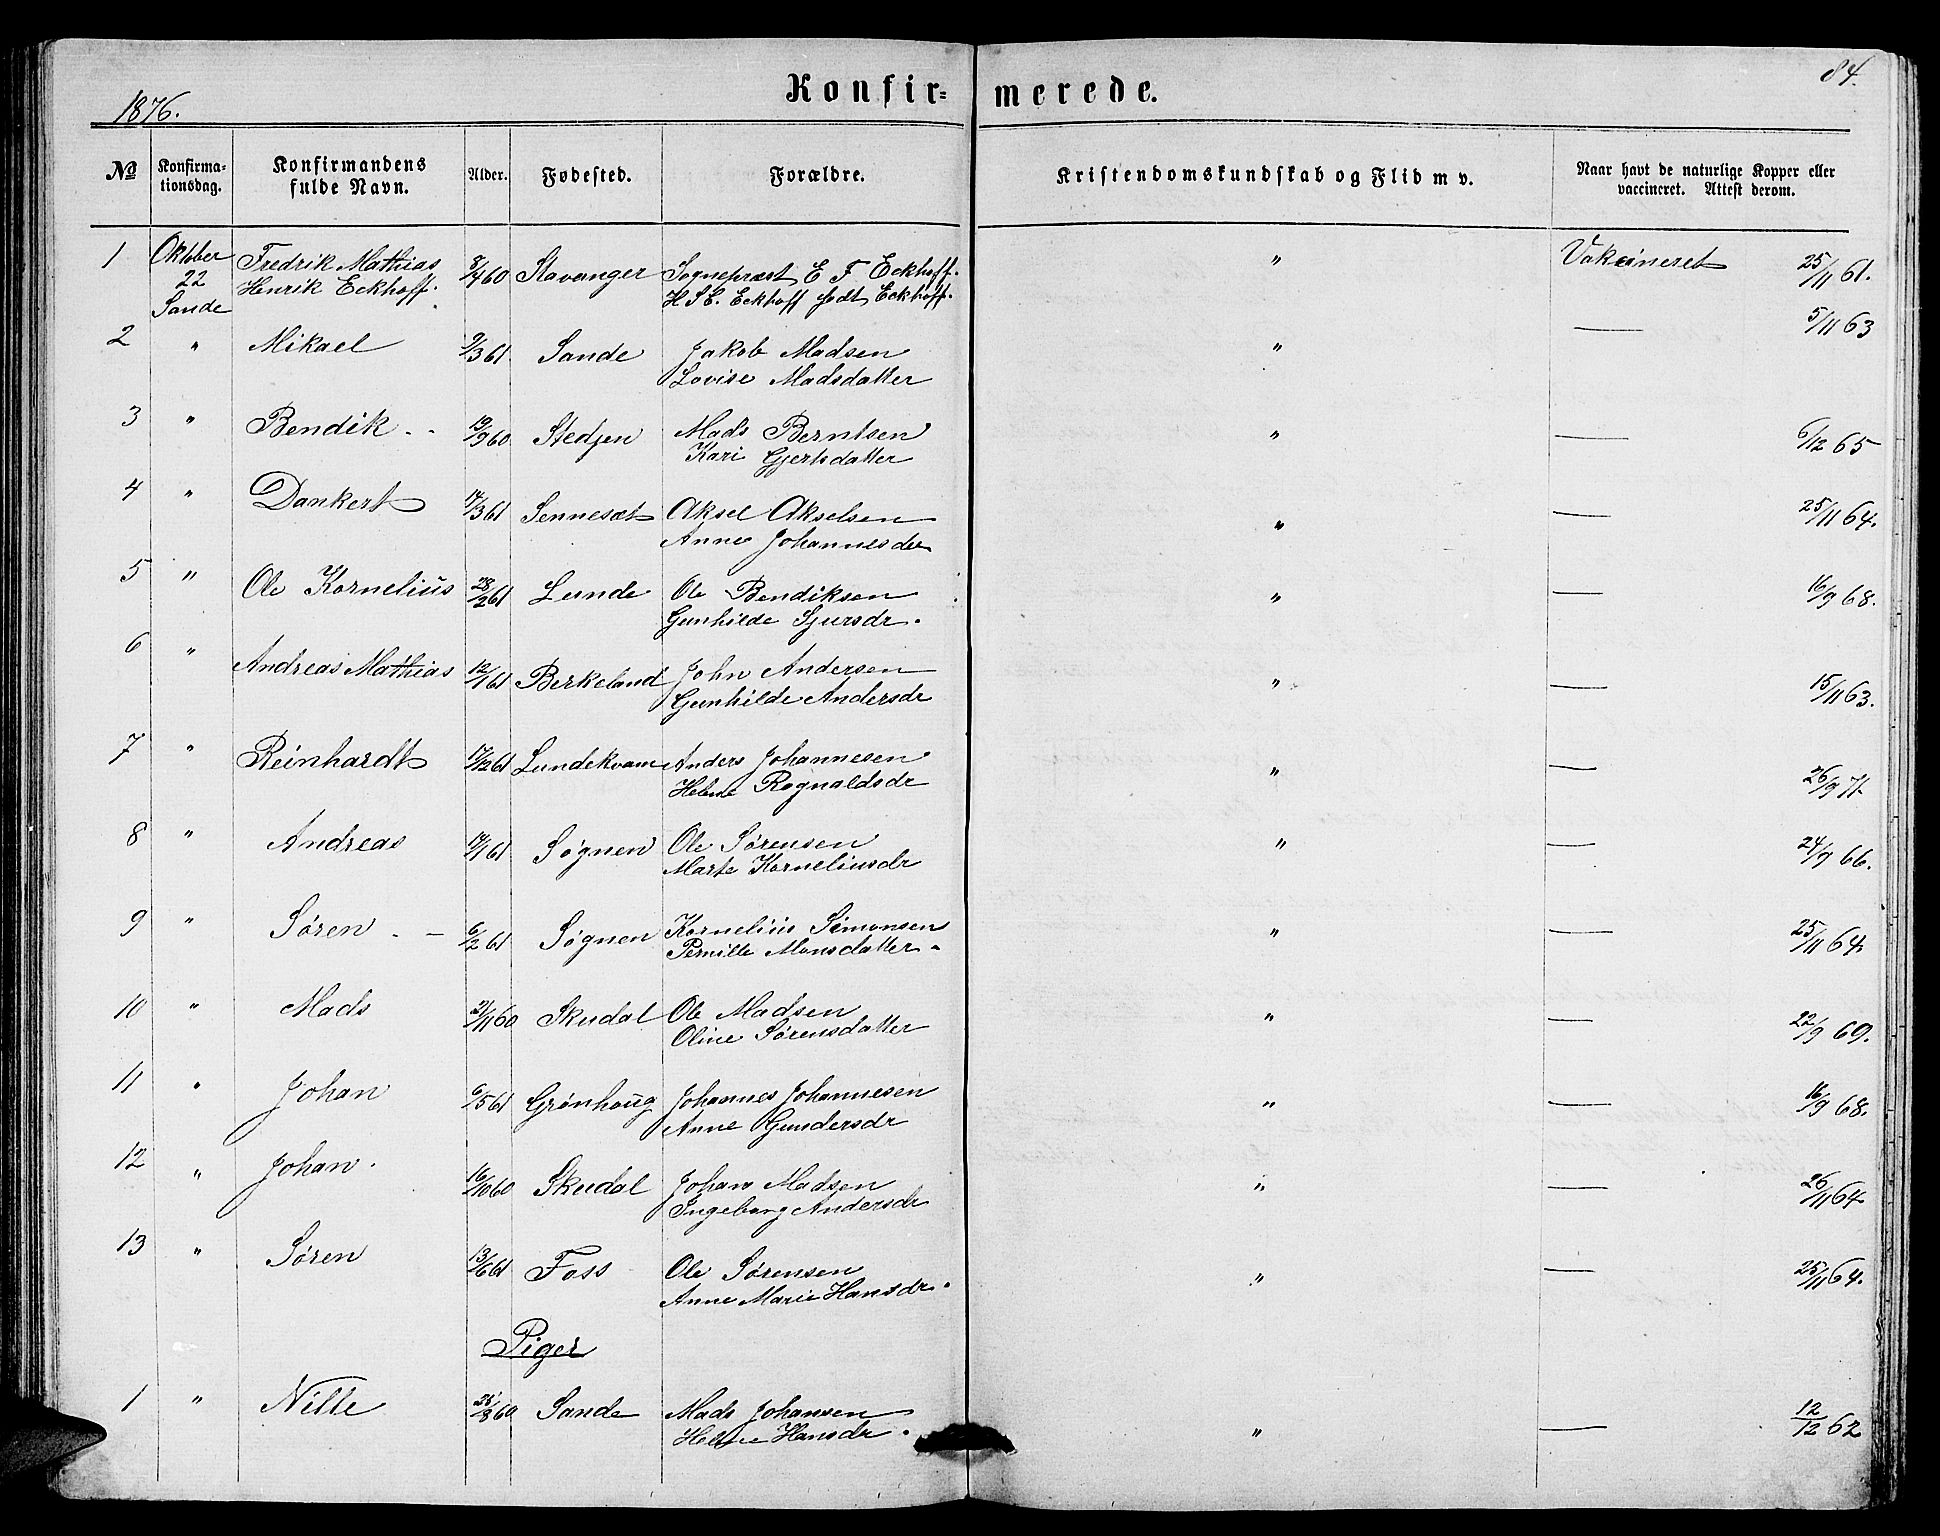 84.
Konfirmerede.
1876.
No Konfirmationsdag. Konfirmandens fulde Navn. Alder. Fødested. Forældre. Kristendomskundskab og Flid m v. Naar havt de naturlige Kopper eller vaccineret. Attest derom.
1 Oktober 22 Sande Fredrik Mathias Henrik Eckhoff. 8/4 60 Stavanger Sognepræst E F Eckhoff. H S E. Eckhoff født Eckhoff. " Vakcineret 25/11 61.
2 " Mikael 9/3 61 Sande Jakob Madsen Lovise Madsdatter " — 5/11 63
3 " Bendik 19/9 60 Stedjen Mads Berntsen Kari Gjertsdatter " — 6/12 65
4 " Dankert 14/3 61 Sennesæt Aksel Akselsen Anne Johannesdr " — 25/11 64.
5 " Ole Kornelius 28/2 61 Lunde Ole Bendiksen Gunhilde Sjursdr. " — 16/9 68.
6 " Andreas Mathias 12/1 61 Berkeland John Andersen Gunhilde Andersdr " — 15/11 63.
7 " Reinhardt 17/2 61 Lundekvam Anders Johannesen Helene Rognaldsdr " — 26/9 71.
8 " Andreas 19/1 61 Søgnen Ole Sørensen Marte Korneliusdr " — 24/9 66.
9 " Søren 6/2 61 Søgnen Kornelius Simonsen Pernille Monsdatter. " — 25/11 64
10 " Mads 21/11 60 Skudal Ole Madsen Oline Sørensdatter " — 22/9 69.
11 " Johan 6/5 61 Grønhoug Johannes Johannesen Anne Gundersdr " — 16/9 68.
12 " Johan. 16/10 60 Skudal Johan Madsen Ingeborg Andersdr " — 26/11 64
13 " Søren 13/6 61 Foss Ole Sørensen Anne Marie Hansdr. " — 25/11 64.
Piger
1 " Nille 25/8 60 Sande Mads Johansen Helene Hansdr. " — 12/12 62